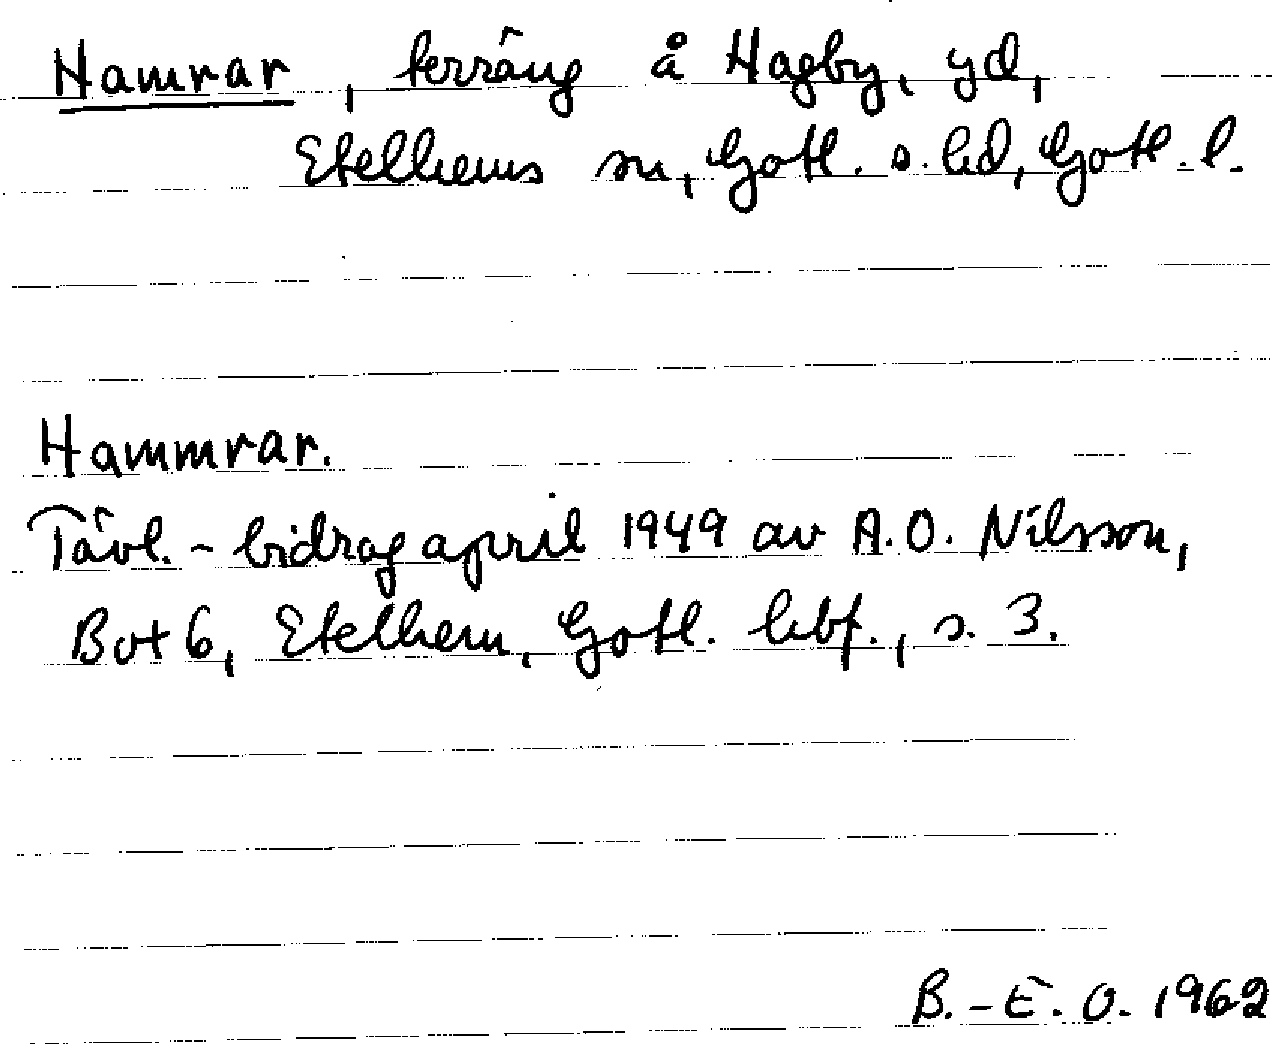 Hamrar, terräng å Hagby, yd,
Etelhems sn, Gotl. s. hd, Gotl. l.
Hammrar.
Tävl.-bidrag april 1949 av A.O. Nilsson,
Bot 6, Etelhem, Gotl. hbf., s. 3.
B.-E. O. 1962